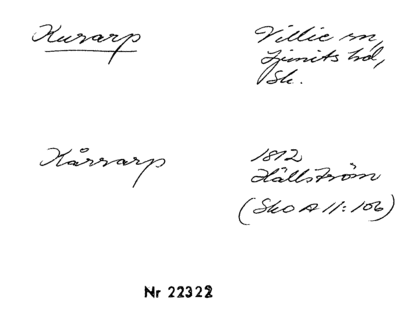 Kurarp
Villie sn,
Ljunits hd,
Sk.
Kårrarp
1812
Hällström
(Sko A 11:106)
Nr 22322